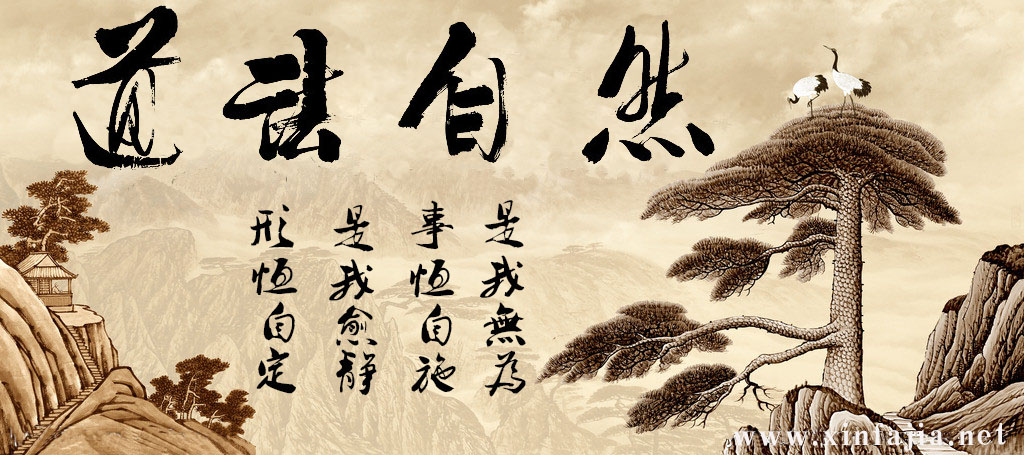 道法自然
是我無為
事恒自施
是我愈靜
形恒自定
www.xinfajia.net